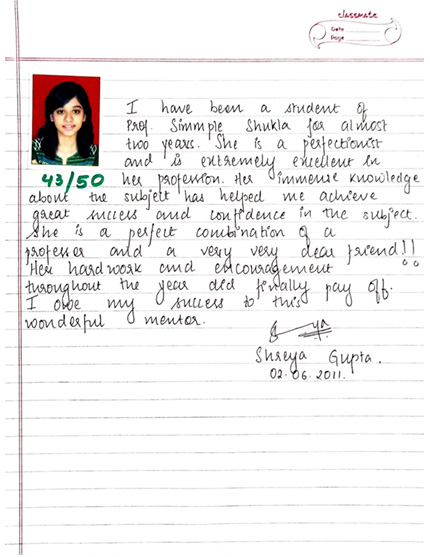 classmate
Date
Page
I have been a student of
Prof. Simmple Shukla for almost
two years. She is a perfectionist
and is extremely excellent in
43/50
her profession. Her immense knowledge
about the subject has helped me achieve
great success and confidence in the subject.
She is a perfect combination of a
professor and a very very dear friend!!
Her hardwork and encouragement
throughout the year did finally pay off.
I owe my success to this
wonderful mentor.
Shreya Gupta.
02.06.2011.